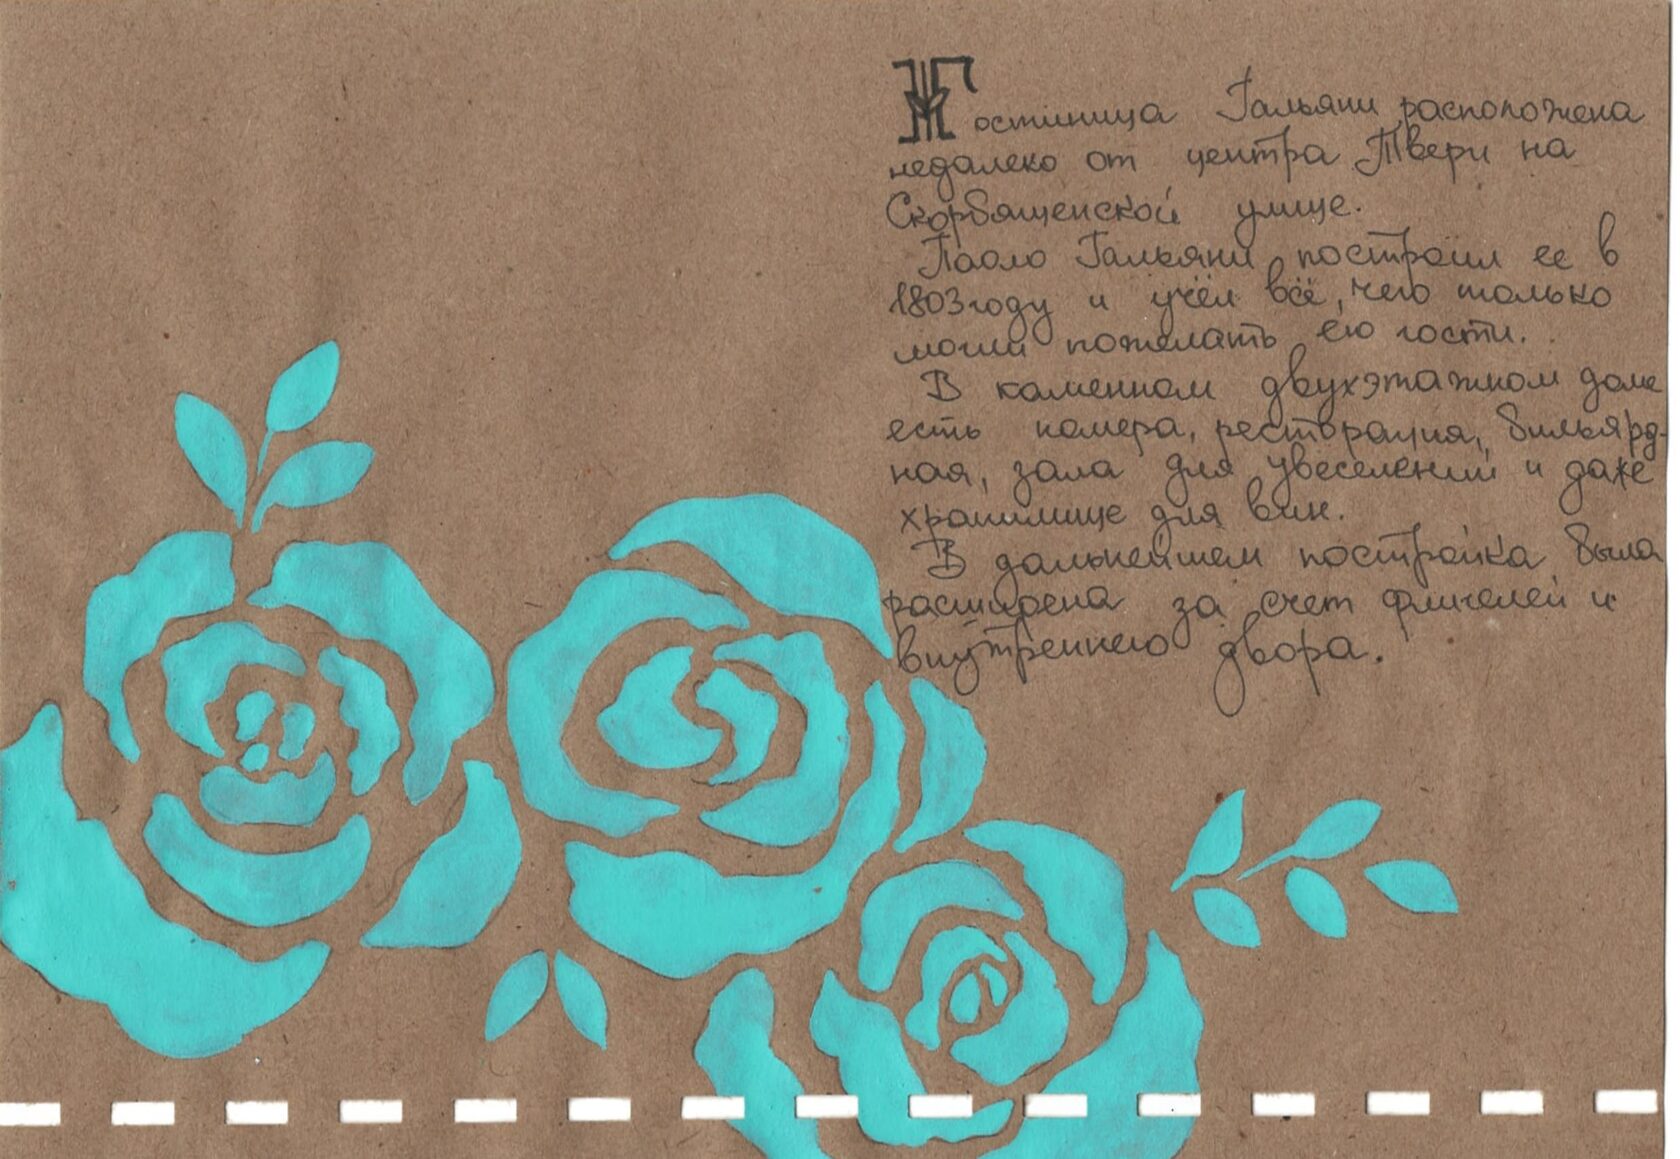 Гостиница Гальяни расположена
недалеко от центра Твери на
Скорбященской улице.
Паоло Гальяни построил ее в
1803 году и учёл всё, чего только
могли пожелать его гости.
В каменном двухэтажном доме
есть номера, ресторация, бильярд-
ная, зала для увеселений и даже
хранилище для вин.
В дальнейшем постройка была
расширена за счет флигелей и
внутреннего двора.